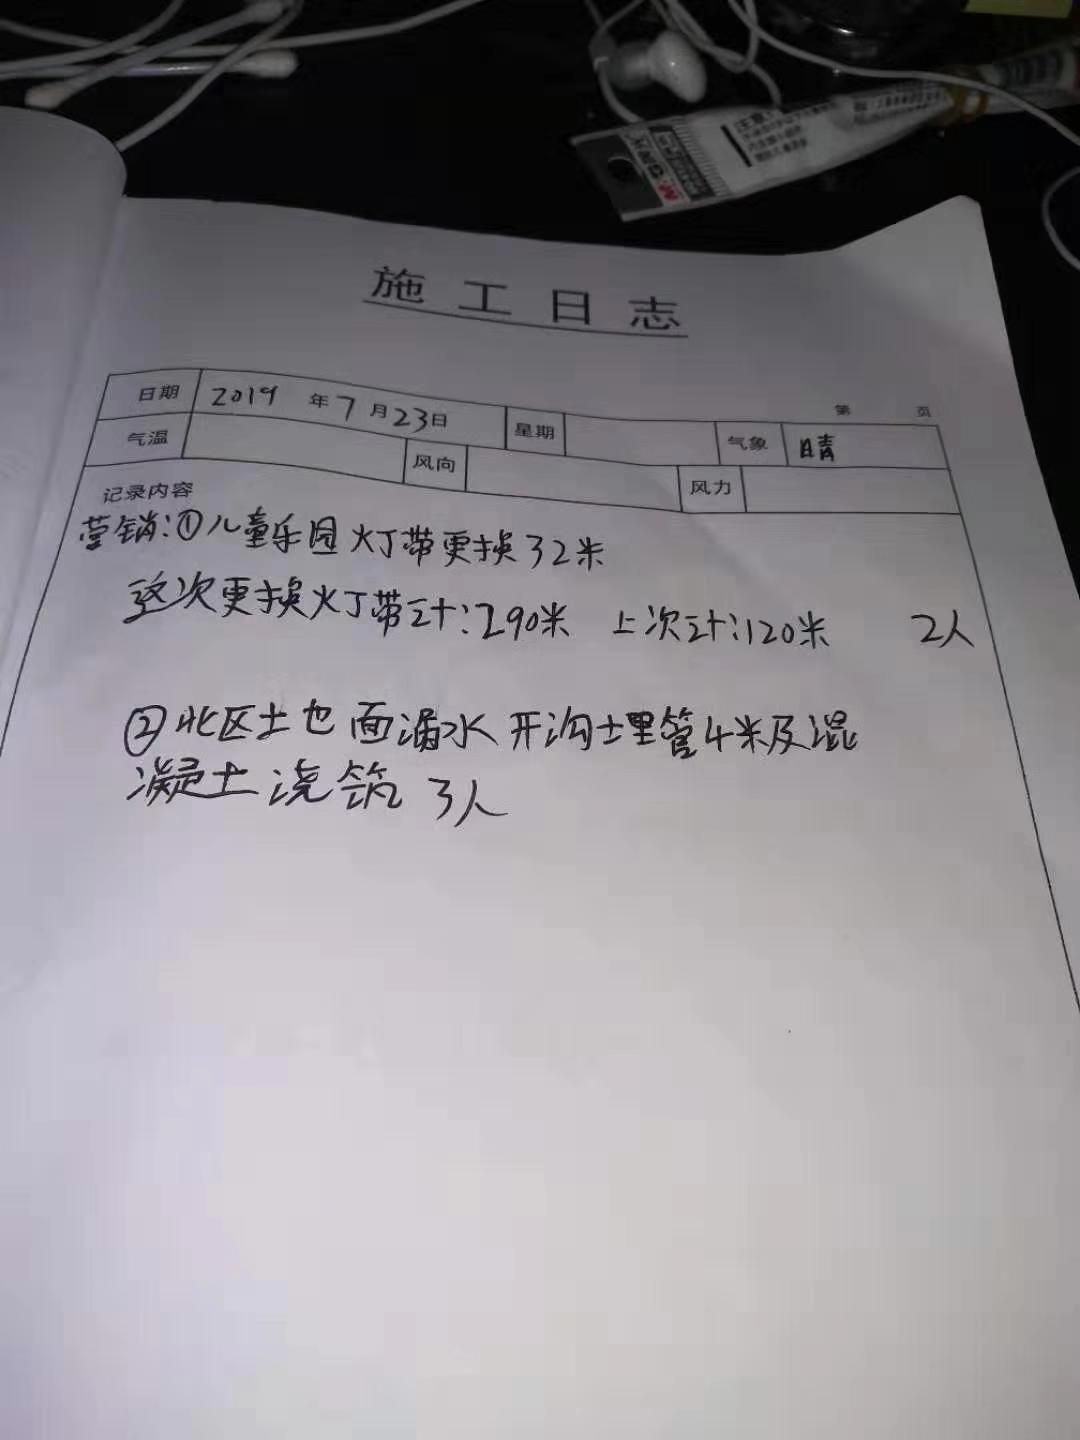 施工日志
第 页
日期 2019 年 7 月 23 日 星期 气象 晴
气温 风向 风力
记录内容
营销:①儿童乐园灯带更换32米
这次更换灯带计:290米 上次计:120米 2人
②北区土也面漏水开沟埋管4米及混
凝土浇筑 3人
M&G 晨光